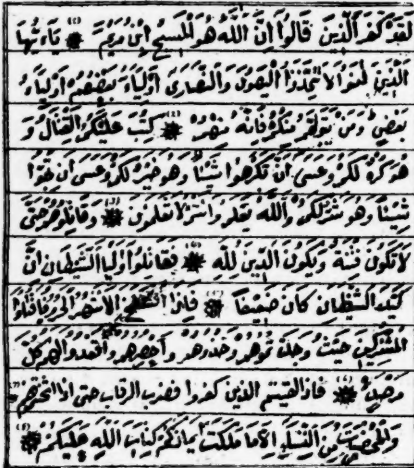 لقد كفر الذين قالوا ان الله هو المسيح ابن مريم (٥) يا ايها
الذين امنوا لا تتخذوا اليهود والنصارى اولياء بعضهم اولياء
بعض ومن يتولهم منكم فانه منهم (٤) كتب عليكم القتال و
هو كره لكم وعسى ان تكرهوا شيئا وهو خير لكم وعسى ان تحبوا
شيئا وهو شر لكم والله يعلم وانتم لا تعلمون وقاتلوهم حتى
لا تكون فتنة ويكون الدين لله (٦) فقاتلوا اولياء الشيطان ان
كيد الشيطان كان ضعيفا (٦) فاذا انسلخ الاشهر الحرم فاقتلوا
المشركين حيث وجدتموهم وخذوهم واحصروهم واقعدوا لهم كل
مرصد فاذا لقيتم الذين كفروا فضرب الرقاب حتى اذا اثخنتموهم
والمحصنت من النساء الا ما ملكت ايمانكم كتاب الله عليكم (٤)